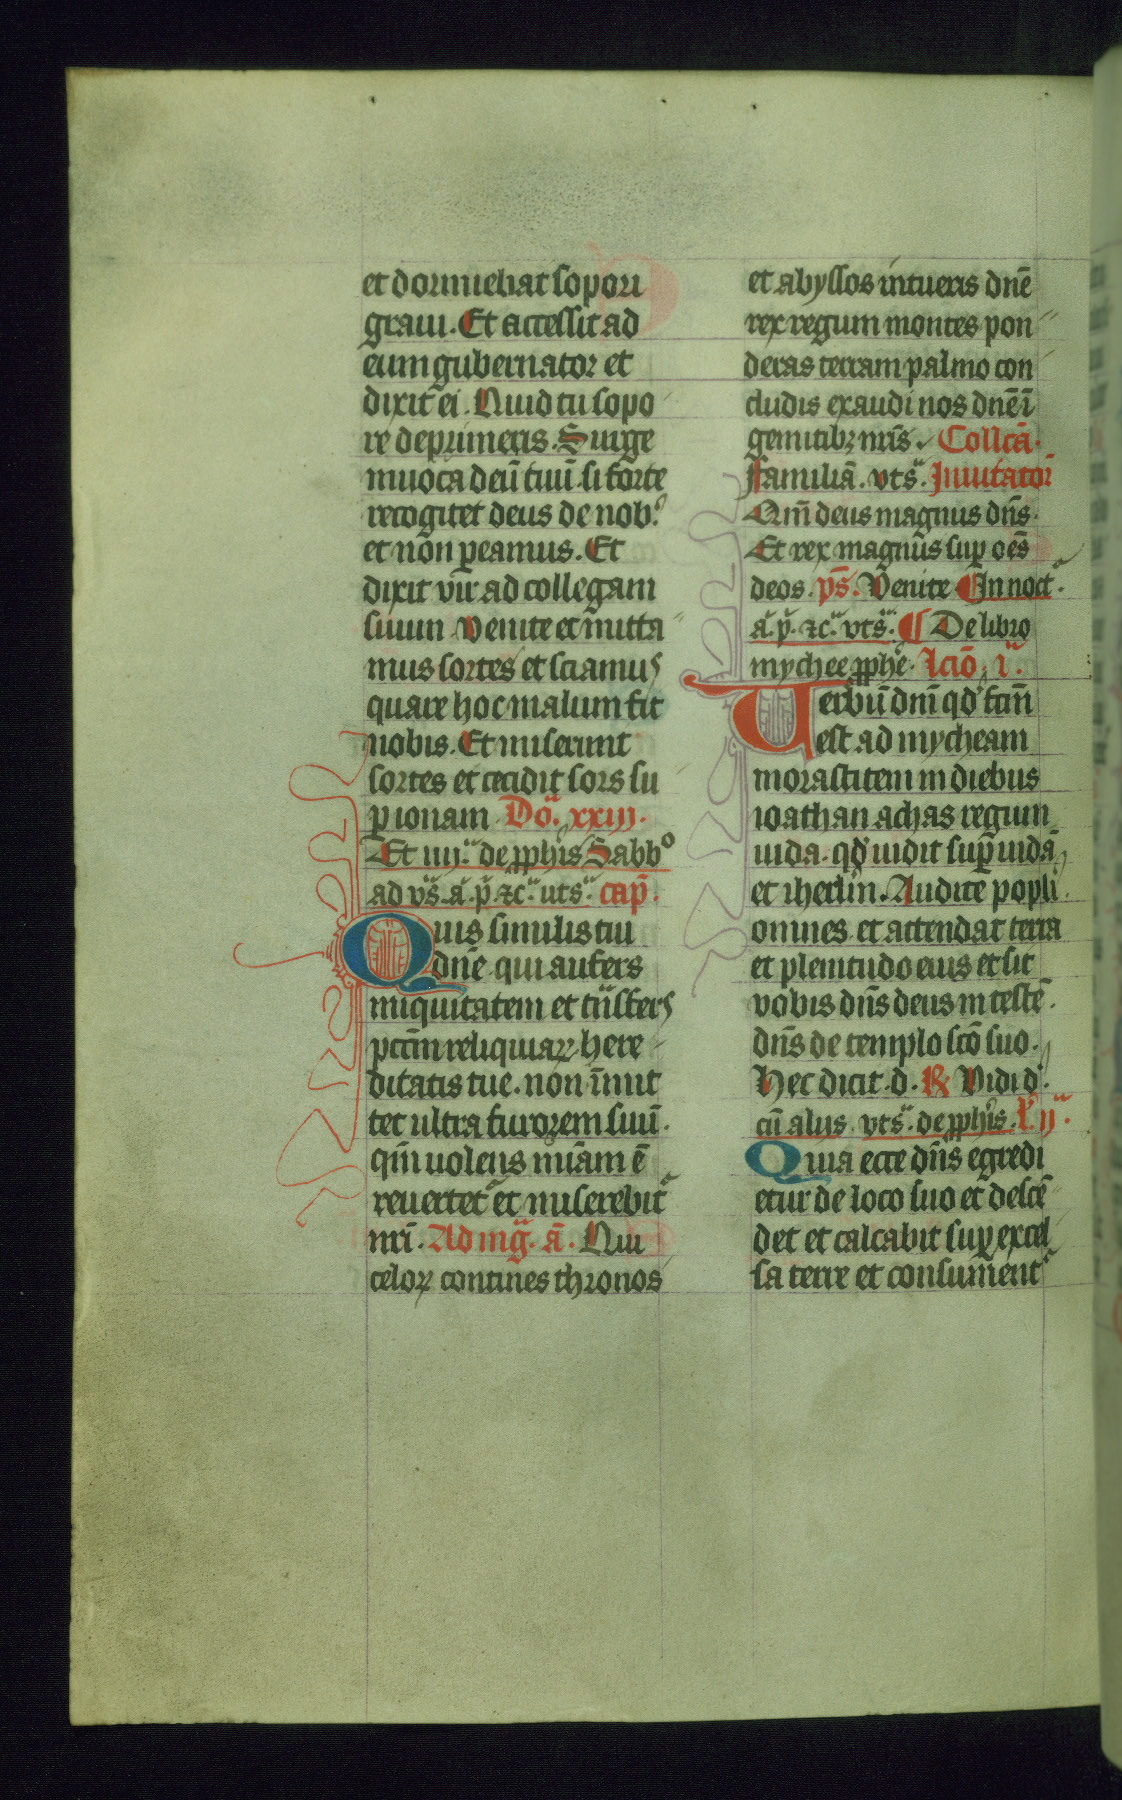 et dormiebat sopori
graui. Et accessit ad
eum gubernator et
dixit ei. Quid tu sopo
re deprimeris. Surge
inuoca deū tuū si forte
recogitet deus de nob.
et non ꝑeamus. Et
dixit vir ad collegam
suum Venite et mitta
mus sortes et sciamus
quare hoc malum sit
nobis. Et miserunt
sortes et cecidit sors su
ꝑ ionam Do. xxiij.
Et iiij. de ꝓphīs Sabb.o
ad vs̄. a. p. ⁊c. uts. cap̄.
Quis similis tui
dne qui aufers
iniquitatem et trāsfers
pctm̄ reliquiaꝝ here
ditatis tue. non īmit
tet ultra furorem suū.
qm̄ uolens miām ē
reuertet̄ et miserebit̄
nrī. Ad mg̃. ā. Qui
celoꝝ contines thronos
et abyssos intueris dnē
rex regum montes pon
deras terram palmo con
cludis exaudi nos dnē ī
gemitibꝫ nrīs. Collcā.
Familiā. vts. Inuitator̄
Qm̄ deus magnus dn̄s.
Et rex magnus suꝑ oēs
deos. ps̄. Venite In noct.
a. p. ⁊c. vts. De libro
mychee ꝓphe. lcīo. i.
Verbū dnī qd' fcm̄
est ad mycheam
morastitem in diebus
ioathan achas regum
iuda. qd' uidit suꝑ iudā
et ihrlm̄. Audite popli
omnes et attendat terra
et plenitudo eius et sit
vobis dn̄s deus in testē.
dn̄s de templo scō suo.
Hec dicit. d. R̷ Vidi d.
cū aliis. vts. de ꝓphīs. l'. ij.
Quia ecce dn̄s egredi
etur de loco suo et descē
det et calcabit suꝑ excel
sa terre et consument̄